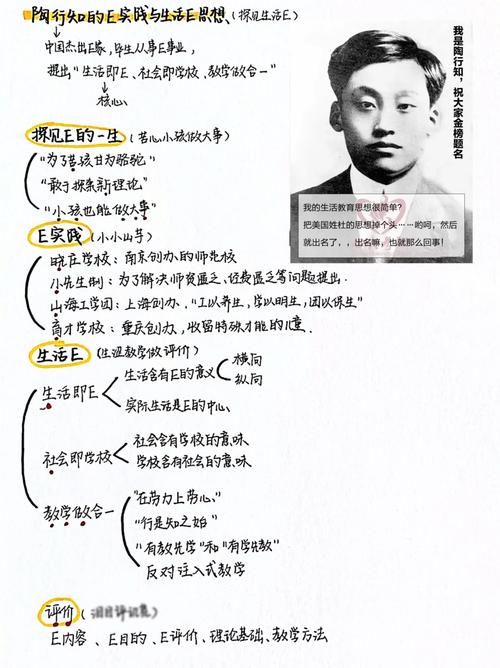 陶行知的E实践与生活E思想、(探见生活E)
中国杰出E家，毕生从事E事业，
提出"生活即E、社会即学校、教学做合一"
核心、
我是陶行知，祝大家金榜题名
我的生活教育思想很简单？
把美国姓杜的思想掉个头……哟呵，然后
就出名了，，出名嘛，也就那么回事！
探见E的一生(苦心小孩做大事)
"为了苦孩甘为骆驼"
"敢于探索新理论"
"小孩也能做大事"
E实践(小小山芋)
晓庄学校：南京创办的师范校
小先生制：为了解决师资匮乏、经费匮乏等问题提出.
山海工学团：上海创办."工以养生，学以明生，团以保生"
育才学校：重庆创办，收留特殊才能的儿童.
生活E(生涯教学做评价)
生活即E
生活含有E的意义
横向
纵向
实际生活是E的中心、
社会即学校
社会含有学校的意味
学校含有社会的意味
教学做合一
"在劳力上劳心、"
"行是知之始"
"有教先学"和"有学先教"
反对注入式教学
评价(
E内容、E目的、E评价、理论基础、教学方法